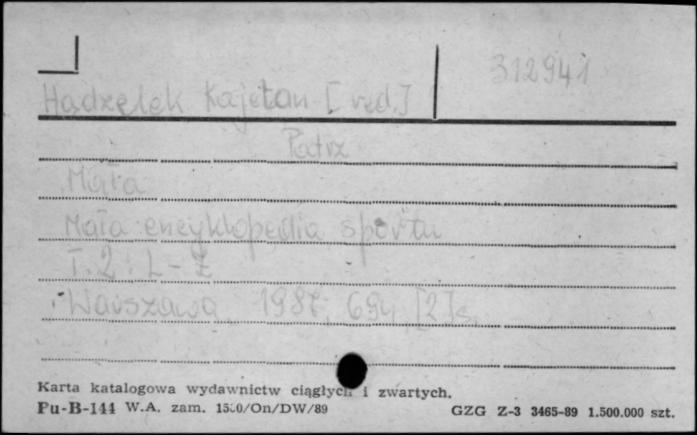 312941
Hądzelek Kajetan [red.]
Patrz
Mała
Mała encyklopedia sportu
T. 2 : L-Ż
Warszawa 1987, 694, [2] s.
Karta katalogowa wydawnictw ciągłych i zwartych.
Pu-B-144 W.A. zam. /On/DW/89 GZG Z-3 3465-89 1.500.000 szt.